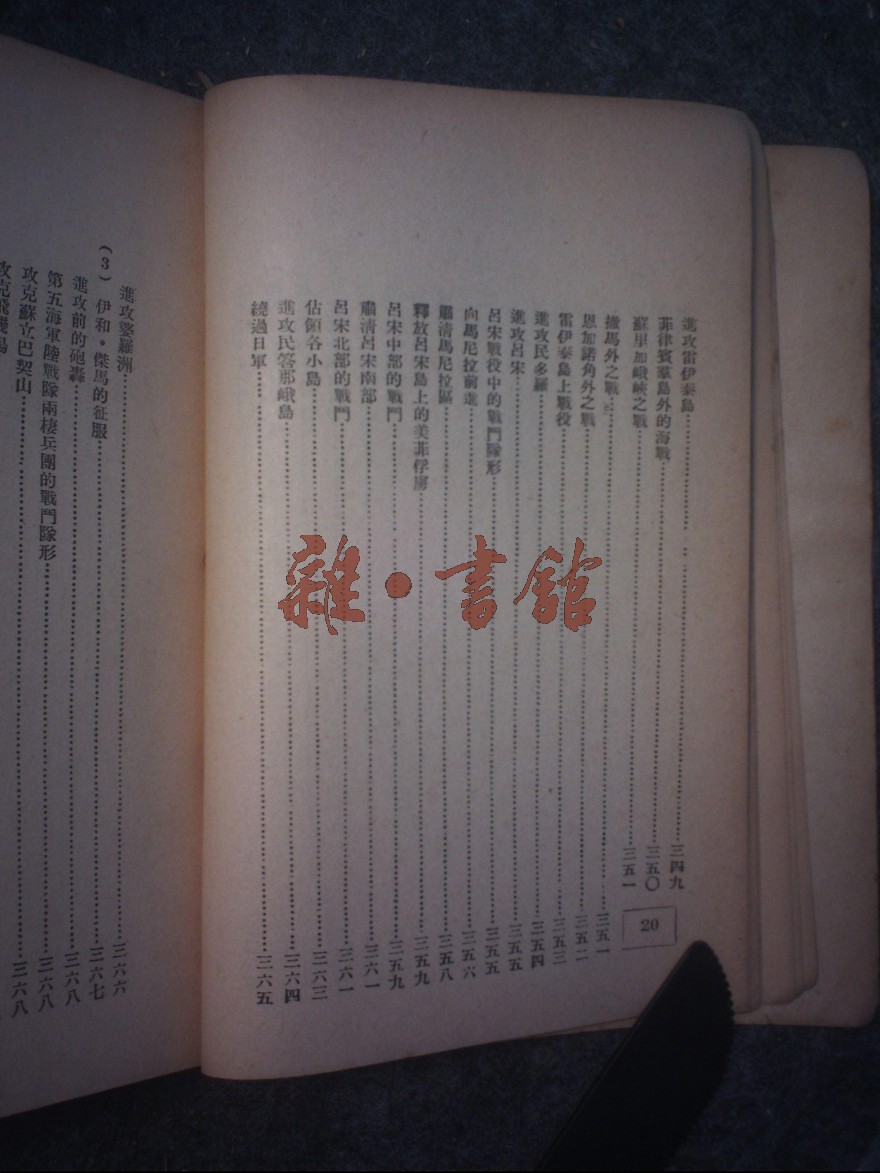 進攻雷伊泰島……三四九
菲律賓羣島外的海戰……三五〇
蘇里加峨峽之戰……三五一
撒馬外之戰……三五一
恩加諾角外之戰……三五二
雷伊泰島上戰役……三五三
進攻民多羅……三五四
進攻呂宋……三五五
呂宋戰役中的戰鬥隊形……三五五
向馬尼拉前進……三五六
肅清馬尼拉區……三五八
釋放呂宋島上的美菲俘虜……三五九
呂宋中部的戰鬥……三五九
肅清呂宋南部……三六一
呂宋北部的戰鬥……三六一
佔領各小島……三六三
進攻民答那峨島……三六四
繞過日軍……三六五
20
進攻婆羅洲……三六六
(3) 伊和·傑馬的征服……三六七
進攻前的砲轟……三六八
第五海軍陸戰隊兩棲兵團的戰鬥隊形……三六八
攻克蘇立巴契山……三六八
攻克飛機場
雜·書館